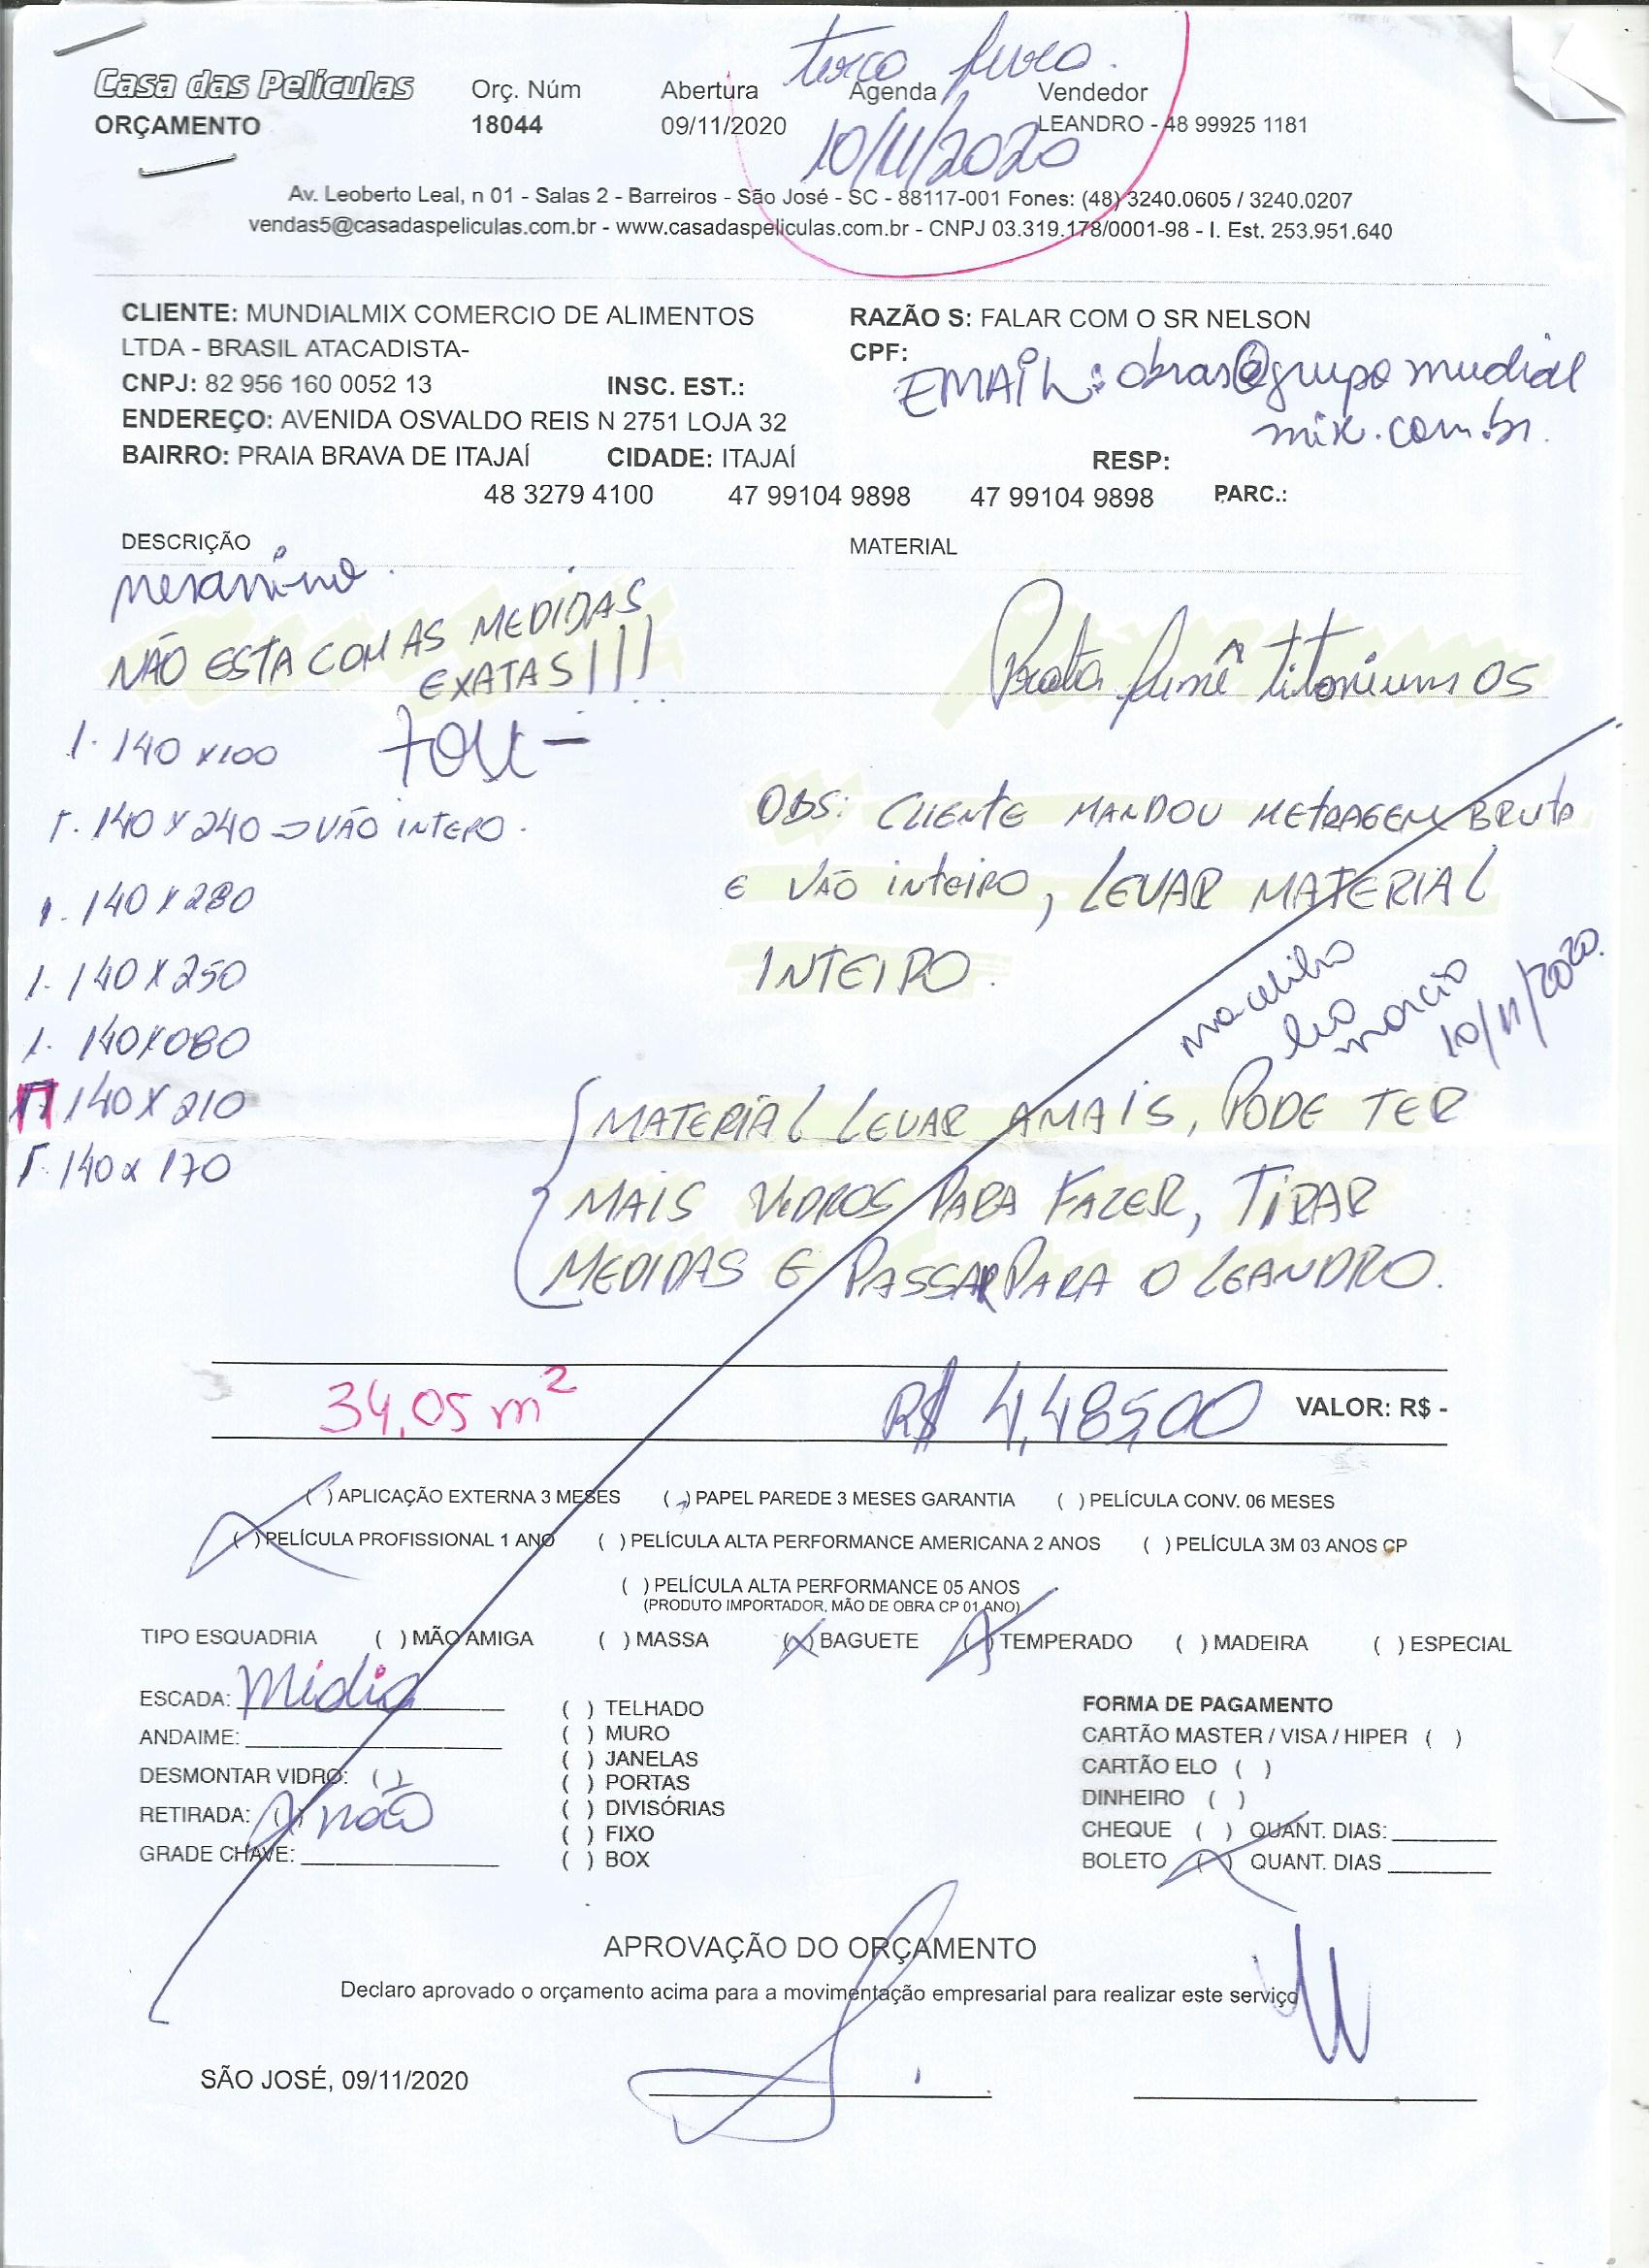 terça feira.
Casa das Películas
Orç. Núm
Abertura
Agenda
Vendedor
ORÇAMENTO
18044
09/11/2020
10/11/2020
LEANDRO - 48 99925 1181
Av. Leoberto Leal, n 01 - Salas 2 - Barreiros - São José - SC - 88117-001 Fones: (48) 3240.0605 / 3240.0207
vendas5@casadaspeliculas.com.br - www.casadaspeliculas.com.br - CNPJ 03.319.178/0001-98 - I. Est. 253.951.640
CLIENTE: MUNDIALMIX COMERCIO DE ALIMENTOS
LTDA - BRASIL ATACADISTA-
RAZÃO S: FALAR COM O SR NELSON
CPF:
EMAIL: obras@grupomudial
mix.com.br.
CNPJ: 82 956 160 0052 13 INSC. EST.:
ENDEREÇO: AVENIDA OSVALDO REIS N 2751 LOJA 32
BAIRRO: PRAIA BRAVA DE ITAJAÍ CIDADE: ITAJAÍ RESP:
48 3279 4100 47 99104 9898 47 99104 9898 PARC.:
DESCRIÇÃO MATERIAL
mesanino.
NÃO ESTA COM AS MEDIDAS
EXATAS!!!
Prata fumê titanium 05
1. 140 x 100
1. 140 x 240 VÃO INTERO.
1. 140 x 280
1. 140 x 250
1. 140 x 080
140 x 210
1. 140 x 170
OBS: CLIENTE MANDOU METRAGEM BRUTA
E VÃO INTEIRO, LEVAR MATERIAL
INTEIRO.
leo
marcio
10/11/2020.
MATERIAL LEVAR AMAIS, PODE TER
MAIS VIDROS PARA FAZER, TIRAR
MEDIDAS E PASSAR PARA O LEANDRO.
34,05 m²
R$ 4,485,00 VALOR: R$ -
( ) APLICAÇÃO EXTERNA 3 MESES ( ) PAPEL PAREDE 3 MESES GARANTIA ( ) PELÍCULA CONV. 06 MESES
( ) PELÍCULA PROFISSIONAL 1 ANO ( ) PELÍCULA ALTA PERFORMANCE AMERICANA 2 ANOS ( ) PELÍCULA 3M 03 ANOS CP
( ) PELÍCULA ALTA PERFORMANCE 05 ANOS
(PRODUTO IMPORTADOR, MÃO DE OBRA CP 01 ANO)
TIPO ESQUADRIA ( ) MÃO AMIGA ( ) MASSA (X) BAGUETE (X) TEMPERADO ( ) MADEIRA ( ) ESPECIAL
ESCADA: Mídia
ANDAIME:
DESMONTAR VIDRO: ( )
RETIRADA: (X) não
GRADE CHAVE:
( ) TELHADO
( ) MURO
( ) JANELAS
( ) PORTAS
( ) DIVISÓRIAS
( ) FIXO
( ) BOX
FORMA DE PAGAMENTO
CARTÃO MASTER / VISA / HIPER ( )
CARTÃO ELO ( )
DINHEIRO ( )
CHEQUE ( ) QUANT. DIAS:
BOLETO (X) QUANT. DIAS
APROVAÇÃO DO ORÇAMENTO
Declaro aprovado o orçamento acima para a movimentação empresarial para realizar este serviço
SÃO JOSÉ, 09/11/2020